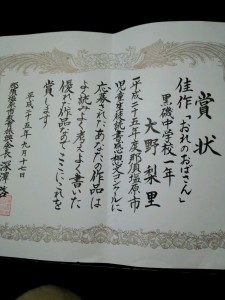 賞状
佳作「おれのおばさん」
黒磯中学校一年
大野梨里
平成二十五年度那須塩原市
児童生徒読書感想文コンクールに
応募されたあなたの作品は
よく読みよく考えよく書いた
優れた作品なのでここにこれを
賞します
平成二十五年九月十七日
那須塩原市教育振興会長 深澤